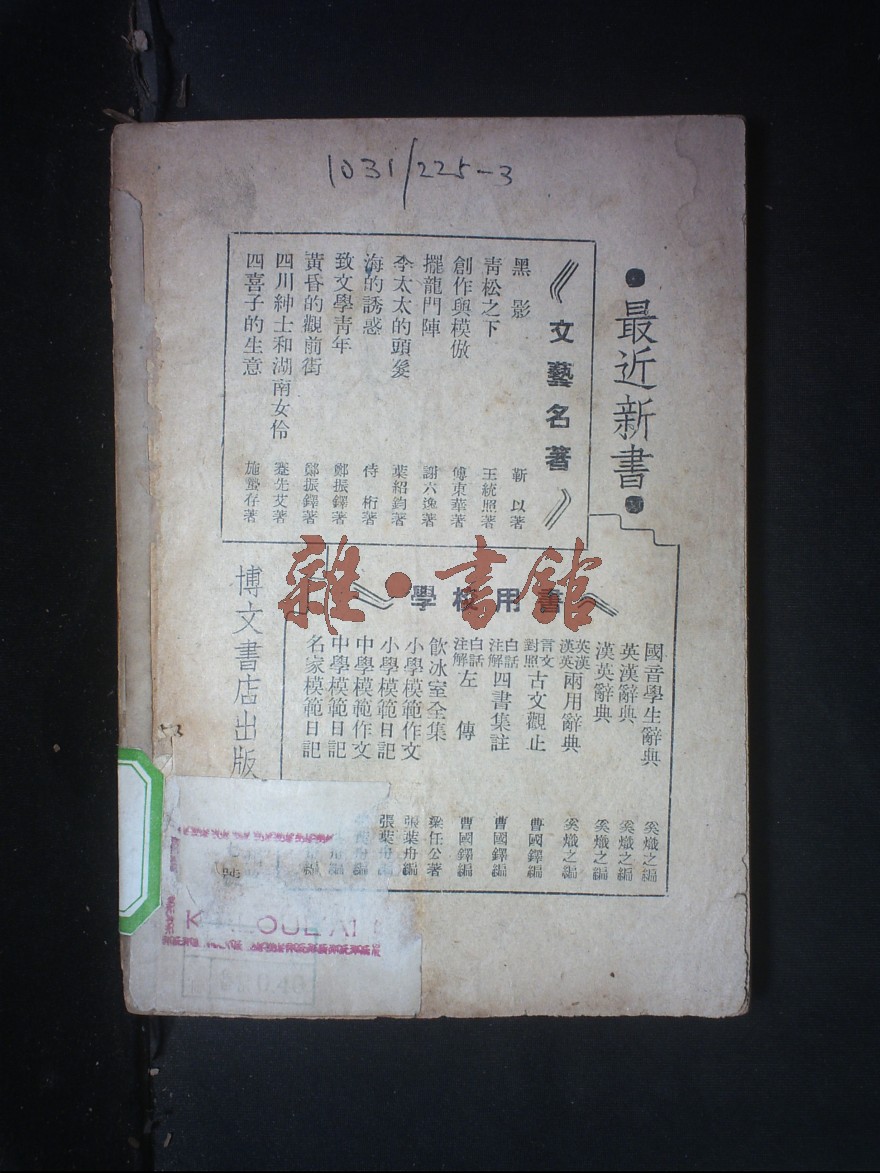 1031/225-3
●最近新書●
《文藝名著》
黑影 靳以著
青松之下 王統照著
創作與模倣 傅東華著
擺龍門陣 謝六逸著
李太太的頭髮 葉紹鈞著
海的誘惑 侍桁著
致文學青年 鄭振鐸著
黃昏的觀前街 鄭振鐸著
四川紳士和湖南女伶 蹇先艾著
四喜子的生意 施蟄存著
學校用書
國音學生辭典 奚熾之編
英漢辭典 奚熾之編
漢英辭典 奚熾之編
英漢漢英兩用辭典 奚熾之編
言文對照古文觀止 曹國鐸編
白話註解四書集註 曹國鐸編
白話註解左傳 曹國鐸編
飲冰室全集 梁任公著
小學模範作文 張葉舟編
小學模範日記 張葉舟編
中學模範作文
中學模範日記
名家模範日記
博文書店出版
雜·書館
53